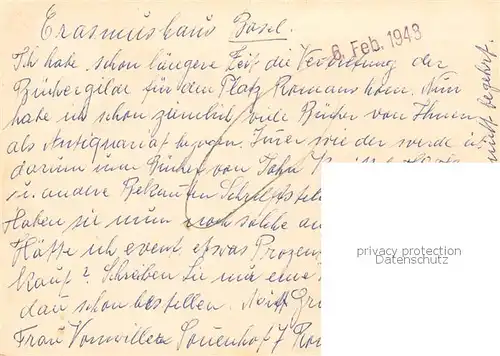 Erasmushaus Basel.
6. Feb. 1943
Ich habe schon längere Zeit die Vertretung der
Büchergilde für den Platz Romanshorn. Nun
habe ich schon ziemlich viele Bücher von Ihnen
als Antiquariat bezogen. Imer wie der werde ich
darum um Bücher von John
u. andere Bekanten Schriftstel
Haben sie nun noch solche an
Hätte ich event. etwas Prozen
kauf? Schreiben Sie mir eine
dan schon bestellen. Mit Gr
Frau Vonwiller 7 Ro
nicht begehrt.
privacy protection
Datenschutz